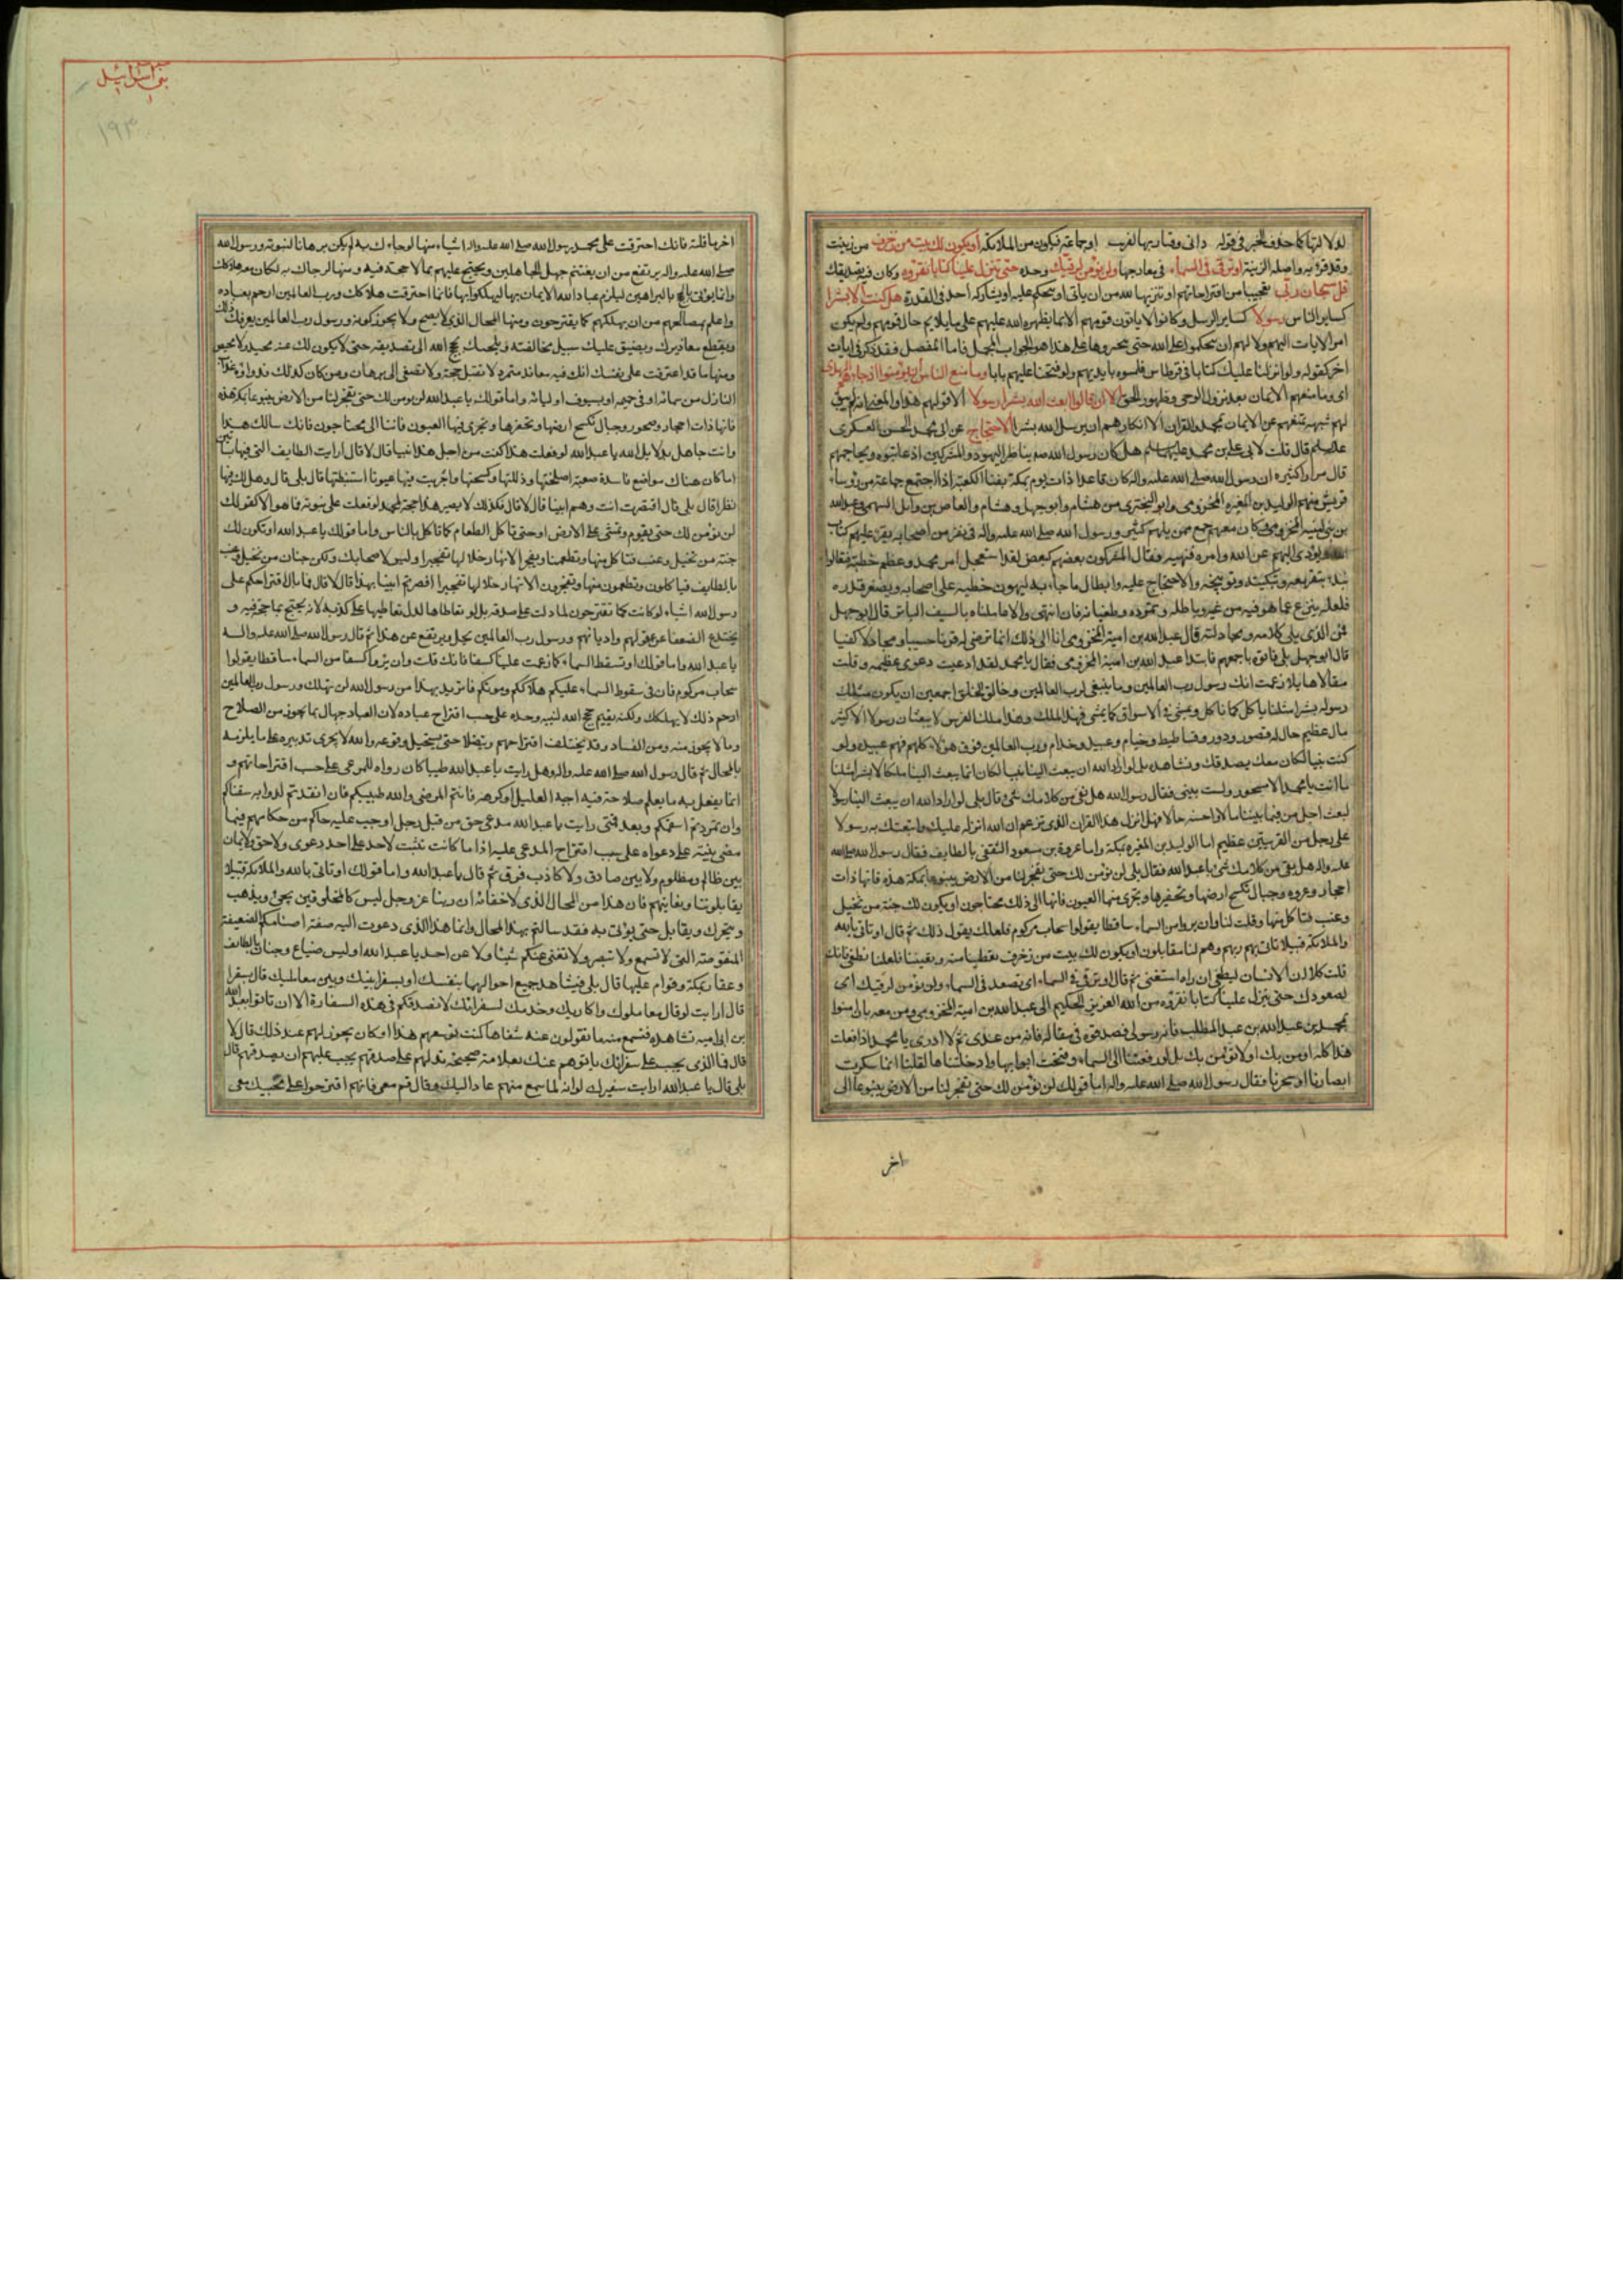 لدلالتها كما حذف الخبر في قوله فاني وقيار بها لغريب او جماعة فيكون من الملائكة او يكون لك بيت من زخرف من زينت
وقد قرئ به واصله الزينة او ترقى في السماء في معارجها ولن نؤمن لرقيك وحده حتى تنزل علينا كتابا نقرؤه وكان فيه تصديقك
قل سبحان ربي تعجبا من اقتراحاتهم او تنزيها لله من ان ياتي او يتحكم عليه او يشاركه احد في القدرة هل كنت الا بشرا
كساير الناس رسولا كساير الرسل وكانوا لا ياتون قومهم الا بما يظهره الله عليهم على ما يلايم حال قومهم ولم يكن
امر الايات اليهم ولا لهم ان يتحكموا على الله حتى يتخيروها على هذا هو الجواب المجمل فاما المفصل فقد ذكر في ايات
اخر كقوله ولو انزلنا عليك كتابا في قرطاس فلمسوه بايديهم ولو فتحنا عليهم بابا وما منع الناس ان يؤمنوا اذ جاءهم الهدى
اي وما منعهم الايمان بعد نزول الوحي وظهور الحق الا ان قالوا ابعث الله بشرا رسولا الا قولهم هذا والمعنى انه لم يبق
لهم شبهة تمنعهم عن الايمان بمحمد والقران الا انكارهم ان يرسل الله بشرا الاحتجاج عن ابي محمد الحسن العسكري
عليه السلم قال قلت لابي علي بن محمد عليهما السلم هل كان رسول الله ص يناظر اليهود والمشركين اذ عاتبوه ويحاجهم
قال مرارا كثيرة ان رسول الله صلى الله عليه واله كان قاعدا ذات يوم بمكة بفناء الكعبة اذا اجتمع جماعة من رؤساء
قريش منهم الوليد بن المغيرة المخزومي وابو البختري من هشام وابو جهل وهشام والعاص بن وايل السهمي وعبد الله
بن ابي امية المخزومي وكان معهم جمع ممن يليهم كثير ورسول الله صلى الله عليه واله في نفر من اصحابه يقرء عليهم كتاب
الله ويؤدي اليهم عن الله وامره ونهيه فقال المشركون بعضهم لبعض لقد استفحل امر محمد وعظم خطبه فتعالوا
نبدء بتقريعه وتبكيته وتوبيخه والاحتجاج عليه وابطال ما جاء به ليهون خطبه على اصحابه ويصغر قدره
فلعله ينزع عما هو فيه من غيه وباطله وتمرده وطغيانه فان انتهى والا عاملناه بالسيف الباتر قال ابو جهل
فمن الذي يلي كلامه ومجادلته قال عبد الله بن ابي امية المخزومي انا الى ذلك اما ترضاني له قرنا حسيبا ومجادلا كفيا
قال ابو جهل بلى فاتوه باجمعهم فابتدا عبد الله بن امية المخزومي فقال يا محمد لقد ادعيت دعوى عظيمة وقلت
مقالا هايلا زعمت انك رسول رب العالمين وما ينبغي لرب العالمين وخالق الخلق اجمعين ان يكون مثلك
رسوله بشرا مثلنا ياكل كما ناكل ويمشي في الاسواق كما يمشي فهذا ملك الروم وهذا ملك الفرس لا يبعثان رسولا الا كثير
مال عظيم حال له قصور ودور وفساطيط وخيام وعبيد وخدام ورب العالمين فوق هؤلاء كلهم فهم عبيده ولو
كنت نبيا لكان معك ملك يصدقك ونشاهده بل لو اراد الله ان يبعث الينا نبيا لكان انما يبعث الينا ملكا لا بشرا مثلنا
ما انت يا محمد الا مسحور ولست بنبي فقال رسول الله هل بقي من كلامك شئ قال بلى لو اراد الله ان يبعث الينا رسولا
لبعث اجل من فيما بيننا مالا واحسنه حالا فهلا نزل هذا القران الذي تزعم ان الله انزله عليك وابتعثك به رسولا
على رجل من القريتين عظيم اما الوليد بن المغيرة بمكة واما عروة بن مسعود الثقفي بالطايف فقال رسول الله صلى الله
عليه واله هل بقي من كلامك شئ يا عبد الله فقال بلى لن نؤمن لك حتى تفجر لنا من الارض ينبوعا بمكة هذه فانها ذات
احجار وعرة وجبال تكسح ارضها وتحفرها وتجري منها العيون فاننا الى ذلك محتاجون او يكون لك جنة من نخيل
وعنب فتاكل منها وقلت لنا وان يروا من السماء ساقطا يقولوا سحاب مركوم فلعلنا نقول ذلك ثم قال او تاتي بالله
والملائكة قبيلا تاتي بهم وهم لنا مقابلون او يكون لك بيت من زخرف تعطينا منه وتغنينا فلعلنا نطغى فانك
قلت كلا ان الانسان ليطغى ان راه استغنى ثم قال او ترقى في السماء اي تصعد في السماء ولن نؤمن لرقيك اي
لصعودك حتى تنزل علينا كتابا نقرؤه من الله العزيز الحكيم الى عبد الله بن امية المخزومي ومن معه بان امنوا
بمحمد بن عبد الله بن عبد المطلب فانه رسولي فصدقوه في مقاله فانه من عندي ثم لا ادري يا محمد اذا فعلت
هذا كله اومن بك او لا نؤمن بك بل لو رفعتنا الى السماء وفتحت ابوابها وادخلتناها لقلنا انما سكرت
ابصارنا او سحرنا فقال رسول الله صلى الله عليه واله اما قولك لن نؤمن لك حتى تفجر لنا من الارض ينبوعا الى
اخر
بني اسرائيل
۱۹۳
اخر ما قلته فانك اقترحت على محمد رسول الله صلى الله عليه واله اشياء منها لو جاءك به لم يكن برهانا لنبوته ورسول الله
صلى الله عليه واله يرتفع من ان يغتنم جهل الجاهلين ويحتج عليهم بما لا حجة فيه ومنها لو جاءك به لكان معه هلاكك
وانما يؤتى بالحجج والبراهين ليلزم عباد الله الايمان بها لا ليهلكوا بها فانما اقترحت هلاكك ورب العالمين ارحم بعباده
واعلم بمصالحهم من ان يهلكهم كما يقترحون ومنها المحال الذي لا يصح ولا يجوز كونه ورسول رب العالمين يعرفك ذلك
ويقطع معاذيرك ويضيق عليك سبيل مخالفته ويلجئك بحجج الله الى تصديقه حتى لا يكون لك عنه محيد ولا محيص
ومنها ما قد اعترفت على نفسك انك فيه معاند متمرد لا تقبل حجة ولا تصغى الى برهان ومن كان كذلك فدواؤه عذاب
النازل من سمائه او في جحيمه او بسيوف اوليائه واما قولك يا عبد الله لن نومن لك حتى تفجر لنا من الارض ينبوعا بمكة هذه
فانها ذات احجار وصخور وجبال تكسح ارضها وتحفرها وتجري فيها العيون فاننا الى محتاجون فانك سالت هذا
وانت جاهل بدلايل الله يا عبد الله لو فعلت هذا كنت من اجل هذا نبيا قال لا قال ارايت الطايف التي فيها بساتين
اما كان هناك مواضع فاسدة صعبة اصلحتها وذللتها وكسحتها واجريت فيها عيونا استنبطتها قال بلى قال وهل لك فيها
نظرا قال بلى قال افصرت انت وهم انبيا قال لا قال فكذلك لا يصير هذا حجة لمحمد لو فعلت على نبوته فما هو الا كقولك
لن نؤمن لك حتى تقوم وتمشي على الارض او حتى تاكل الطعام كما تاكل بالناس واما قولك يا عبد الله او تكون لك
جنة من نخيل وعنب فتاكل منها وتطعمنا وتفجر الانهار خلالها تفجيرا او ليس لاصحابك ولك جنان من نخيل وعنب
بالطايف فياكلون وتطعمون منها وتفجرون الانهار خلالها تفجيرا افصرتم انبيا بهذا قال لا قال فما بال اقتراحكم على
رسول الله اشياء لو كانت كما تقترحون لما دلت على صدقه بل لو تعاطاها لدل تعاطيها على كذبه لانه يحتج بما لا حجة فيه و
يختدع الضعفا عن عقولهم واديانهم ورسول رب العالمين يجل ويرتفع عن هذا ثم قال رسول الله صلى الله عليه واله
يا عبد الله واما قولك او تسقط السماء كما زعمت علينا كسفا فانك قلت وان يروا كسفا من السماء ساقطا يقولوا
سحاب مركوم فان في سقوط السماء عليكم هلاككم وموتكم فانما تريد بهذا من رسول الله ان يهلك ورسول رب العالمين
ارحم ذلك لا يهلكك ولكنه يقيم حجج الله لنبيه وحده على حسب اقتراح عباده لان العباد جهال بما يجوز من الصلاح
وما لا يجوز منه ومن الفساد وقد يختلف اقتراحهم ويتضاد حتى يستحيل وقوعه والله لا يجري تدبيره على ما يلزم به
بالمحال ثم قال رسول الله صلى الله عليه واله وهل رايت يا عبد الله طبيبا كان دواه للمرضى على حسب اقتراحاتهم و
انما يفعل به ما يعلم صلاحه فيه احبه العليل او كرهه فانتم المرضى والله طبيبكم فان انقدتم لدوائه شفاكم
وان تمردتم اسقمكم وبعد فمتى رايت يا عبد الله مدعي حق من قبل رجل اوجب عليه حاكم من حكامهم فيما
مضى بينة على دعواه على حسب اقتراح المدعى عليه اذا ما كانت تثبت لاحد على احد دعوى ولا حق ولا كان
بين ظالم ومظلوم ولا بين صادق ولا كاذب فرق ثم قال يا عبد الله واما قولك او تاتي بالله والملائكة قبيلا
يقابلوننا ونعاينهم فان هذا من المحال الذي لا خفاء به ان ربنا عز وجل ليس كالمخلوقين يجئ ويذهب
ويتحرك ويقابل حتى يؤتى به فقد سالتم بهذا المحال وانما هذا الذي دعوت اليه صفة اصنامكم الضعيفة
المنقوصة التي لا تسمع ولا تبصر ولا تغني عنكم شيئا ولا عن احد يا عبد الله او ليس ضياع وجنان بالطايف
وعقار بمكة وقوام عليها قال بلى فتشاهد جميع احوالها بنفسك او بسفرا بينك وبين معامليك قال بسفرا
قال ارايت لو قال معاملوك واكاريك وخدمك لسفرائك لا نصدقكم في هذه السفارة الا ان تاتوا بعبد الله
بن ابي امية نشاهده فنسمع منه ما تقولون عنه شفاها كنت توسعهم هذا او كان يجوز لهم عند ذلك قال لا
قال فما الذي يجب على سفرائك ياتوهم عنك بعلامة صحيحة تدلهم على صدقهم يجب عليهم ان يصدقهم قال
بلى قال يا عبد الله ارايت سفيرك لو انه لما سمع منهم عاد اليك وقال قم معي فانهم اقترحوا على مجيئك معي